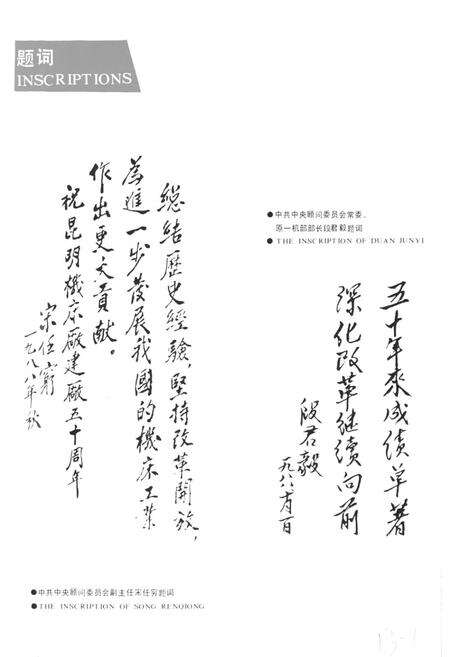 题词
INSCRIPTIONS
●中共中央顾问委员会常委、
原一机部部长段君毅题词
●THE INSCRIPTION OF DUAN JUNYI
五十年来成绩卓著
深化改革继续向前
段君毅
总结歷史經驗，堅持改革開放，
為進一步發展我國的機床工業
作出更大貢献。
祝昆明機床廠建廠五十周年
宋任窮
一九八六年秋
●中共中央顾问委员会副主任宋任穷题词
●THE INSCRIPTION OF SONG RENQIONG